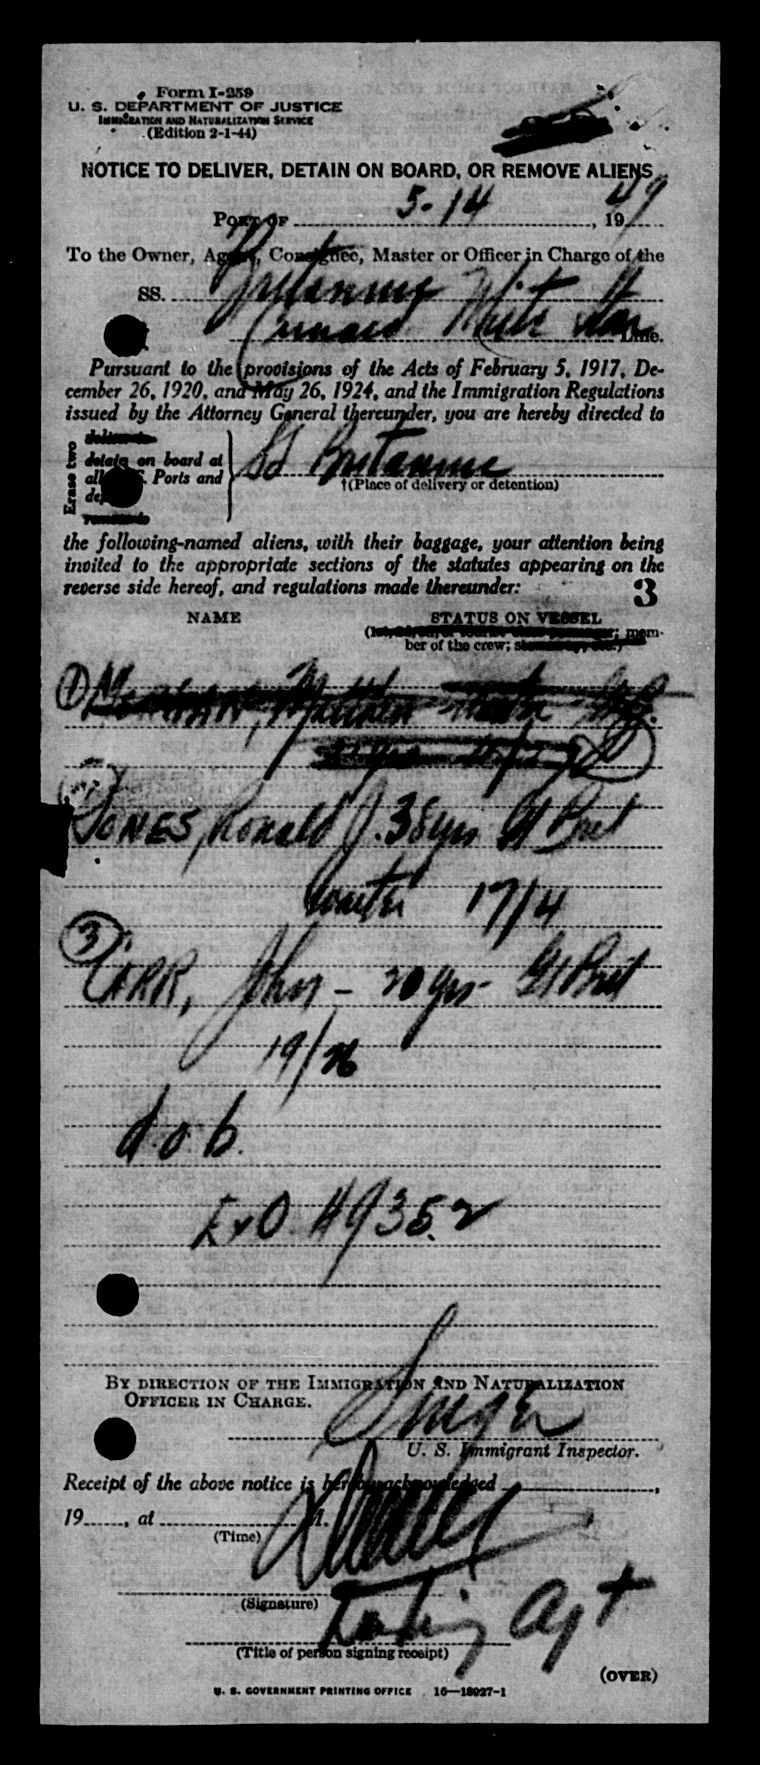 Form I-259
U. S. DEPARTMENT OF JUSTICE
IMMIGRATION AND NATURALIZATION SERVICE
(Edition 2-1-44)
NOTICE TO DELIVER, DETAIN ON BOARD, OR REMOVE ALIENS
PORT OF 5-14, 1949
To the Owner, Agent, Consignee, Master or Officer in Charge of the
SS. Britannic
Cunard White Star Line.
Pursuant to the provisions of the Acts of February 5, 1917, De-
cember 26, 1920, and May 26, 1924, and the Immigration Regulations
issued by the Attorney General thereunder, you are hereby directed to
Erase two
deliver to
detain on board at
all U. S. Ports and
SS Britannic
†(Place of delivery or detention)
the following-named aliens, with their baggage, your attention being
invited to the appropriate sections of the statutes appearing on the
reverse side hereof, and regulations made thereunder:
3
NAME STATUS ON VESSEL
mem-
ber of the crew;
1 Matthew
JONES, Ronald J. 38 yrs Gt Brit
waiter 17/4
3 CARR, John - 20 yrs - Gt Brit
19/26
d.o.b.
ExO 49352
BY DIRECTION OF THE IMMIGRATION AND NATURALIZATION
OFFICER IN CHARGE.
U. S. Immigrant Inspector.
Receipt of the above notice is hereby acknowledged,
19, at M.
(Time)
(Signature)
Agt
(Title of person signing receipt)
(OVER)
U. S. GOVERNMENT PRINTING OFFICE 16—18927-1